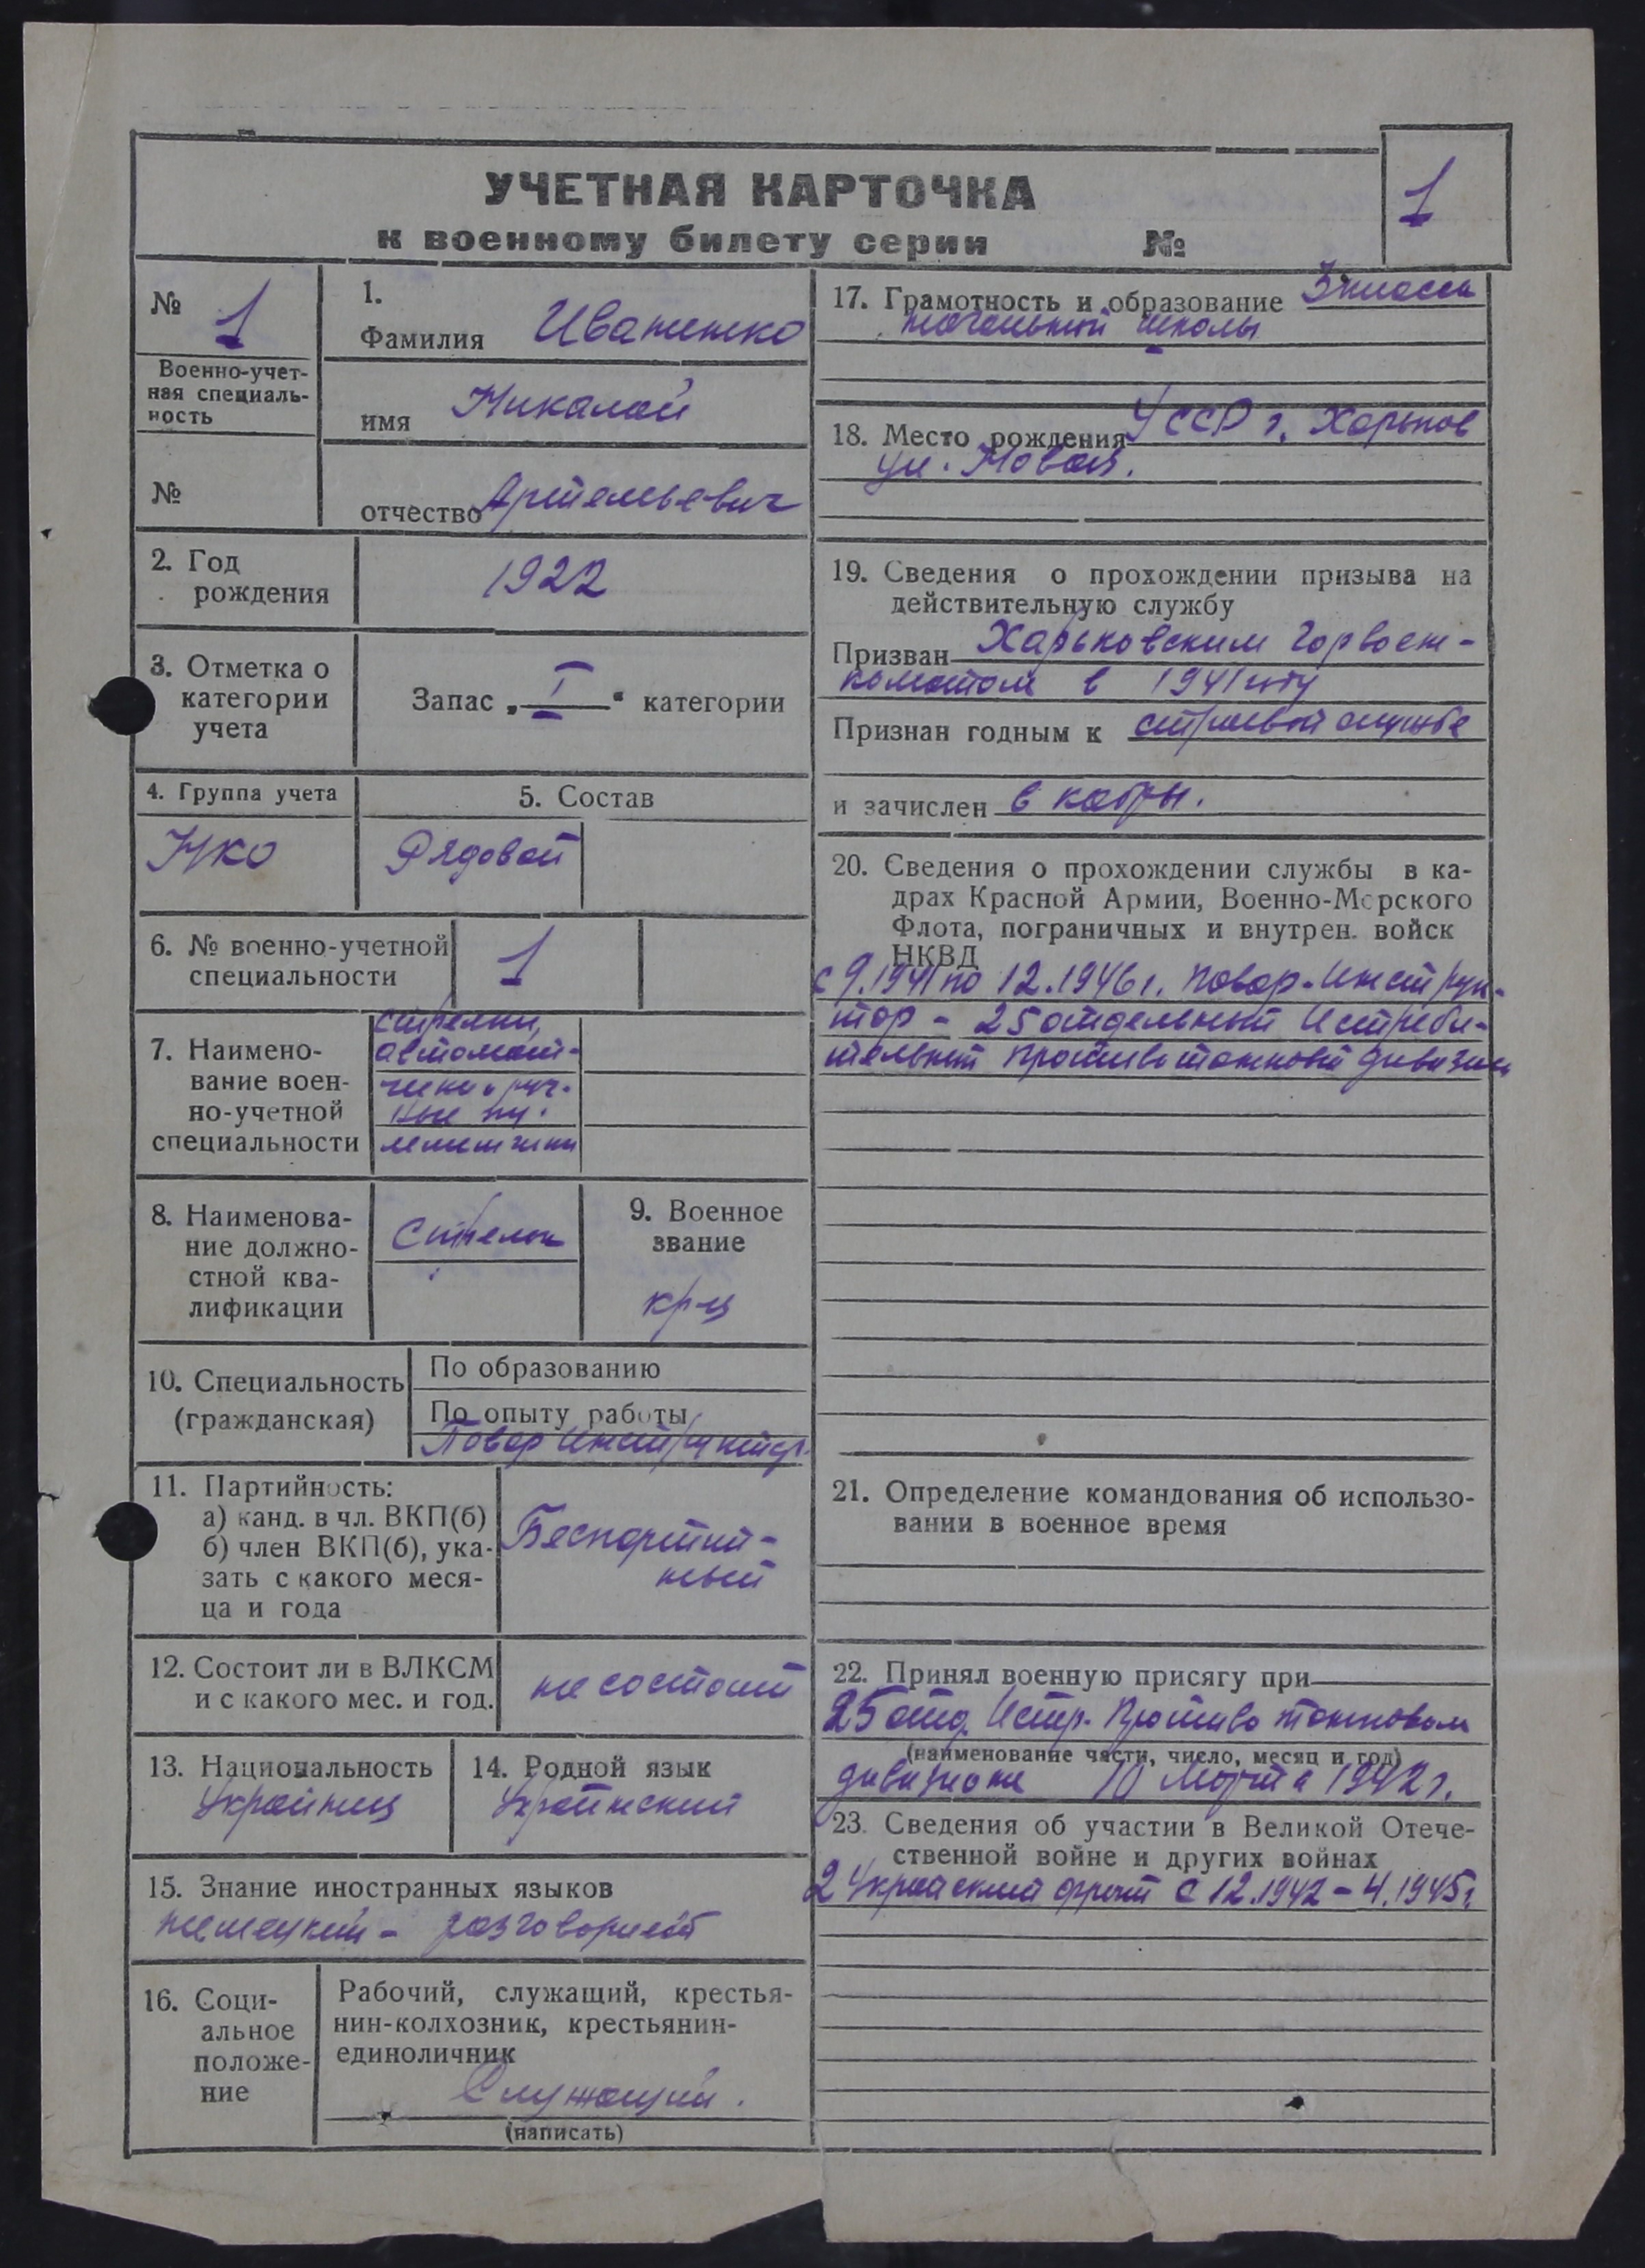 УЧЕТНАЯ КАРТОЧКА
к военному билету серии №
1
№ 1
Военно-учет-
ная специаль-
ность
№
1.
Фамилия Иваненко
имя Николай
отчество Артемьевич
2. Год
рождения
1922
3. Отметка о
категории
учета
Запас „ I " категории
4. Группа учета
5. Состав
УКО
Рядовой
6. № военно-учетной
специальности
1
7. Наимено-
вание воен-
но-учетной
специальности
стрелки,
автомат-
чики, руч-
ные пу-
леметчики
8. Наименова-
ние должно-
стной ква-
лификации
Стрелок
9. Военное
звание
кр-ц
10. Специальность
(гражданская)
По образованию
По опыту работы
Повар Инструктор
11. Партийность:
а) канд. в чл. ВКП(б)
б) член ВКП(б), ука-
зать с какого меся-
ца и года
Беспартий-
ный
12. Состоит ли в ВЛКСМ
и с какого мес. и год.
не состоит
13. Национальность
Украинец
14. Родной язык
Украинский
15. Знание иностранных языков
немецкий - разговорный
16. Соци-
альное
положе-
ние
Рабочий, служащий, крестья-
нин-колхозник, крестьянин-
единоличник
Служащий.
(написать)
17. Грамотность и образование 3 класса
начальной школы
18. Место рождения УССР г. Харьков
ул. Новая.
19. Сведения о прохождении призыва на
действительную службу
Призван Харьковским Горвоен-
коматом в 1941 году
Признан годным к строевой службе
и зачислен в кадры.
20. Сведения о прохождении службы в ка-
драх Красной Армии, Военно-Морского
Флота, пограничных и внутрен. войск
НКВД
с 9.1941 по 12.1946 г. Повар-Инструк-
тор - 25 отдельный Истреби-
тельный противотанковый дивизион
21. Определение командования об использо-
вании в военное время
22. Принял военную присягу при
25 отд. Истр. Противотанковом
(наименование части, число, месяц и год)
дивизионе 10 Марта 1942 г.
23. Сведения об участии в Великой Отече-
ственной войне и других войнах
2 Украинский фронт с 12.1942 - 4.1945 г.